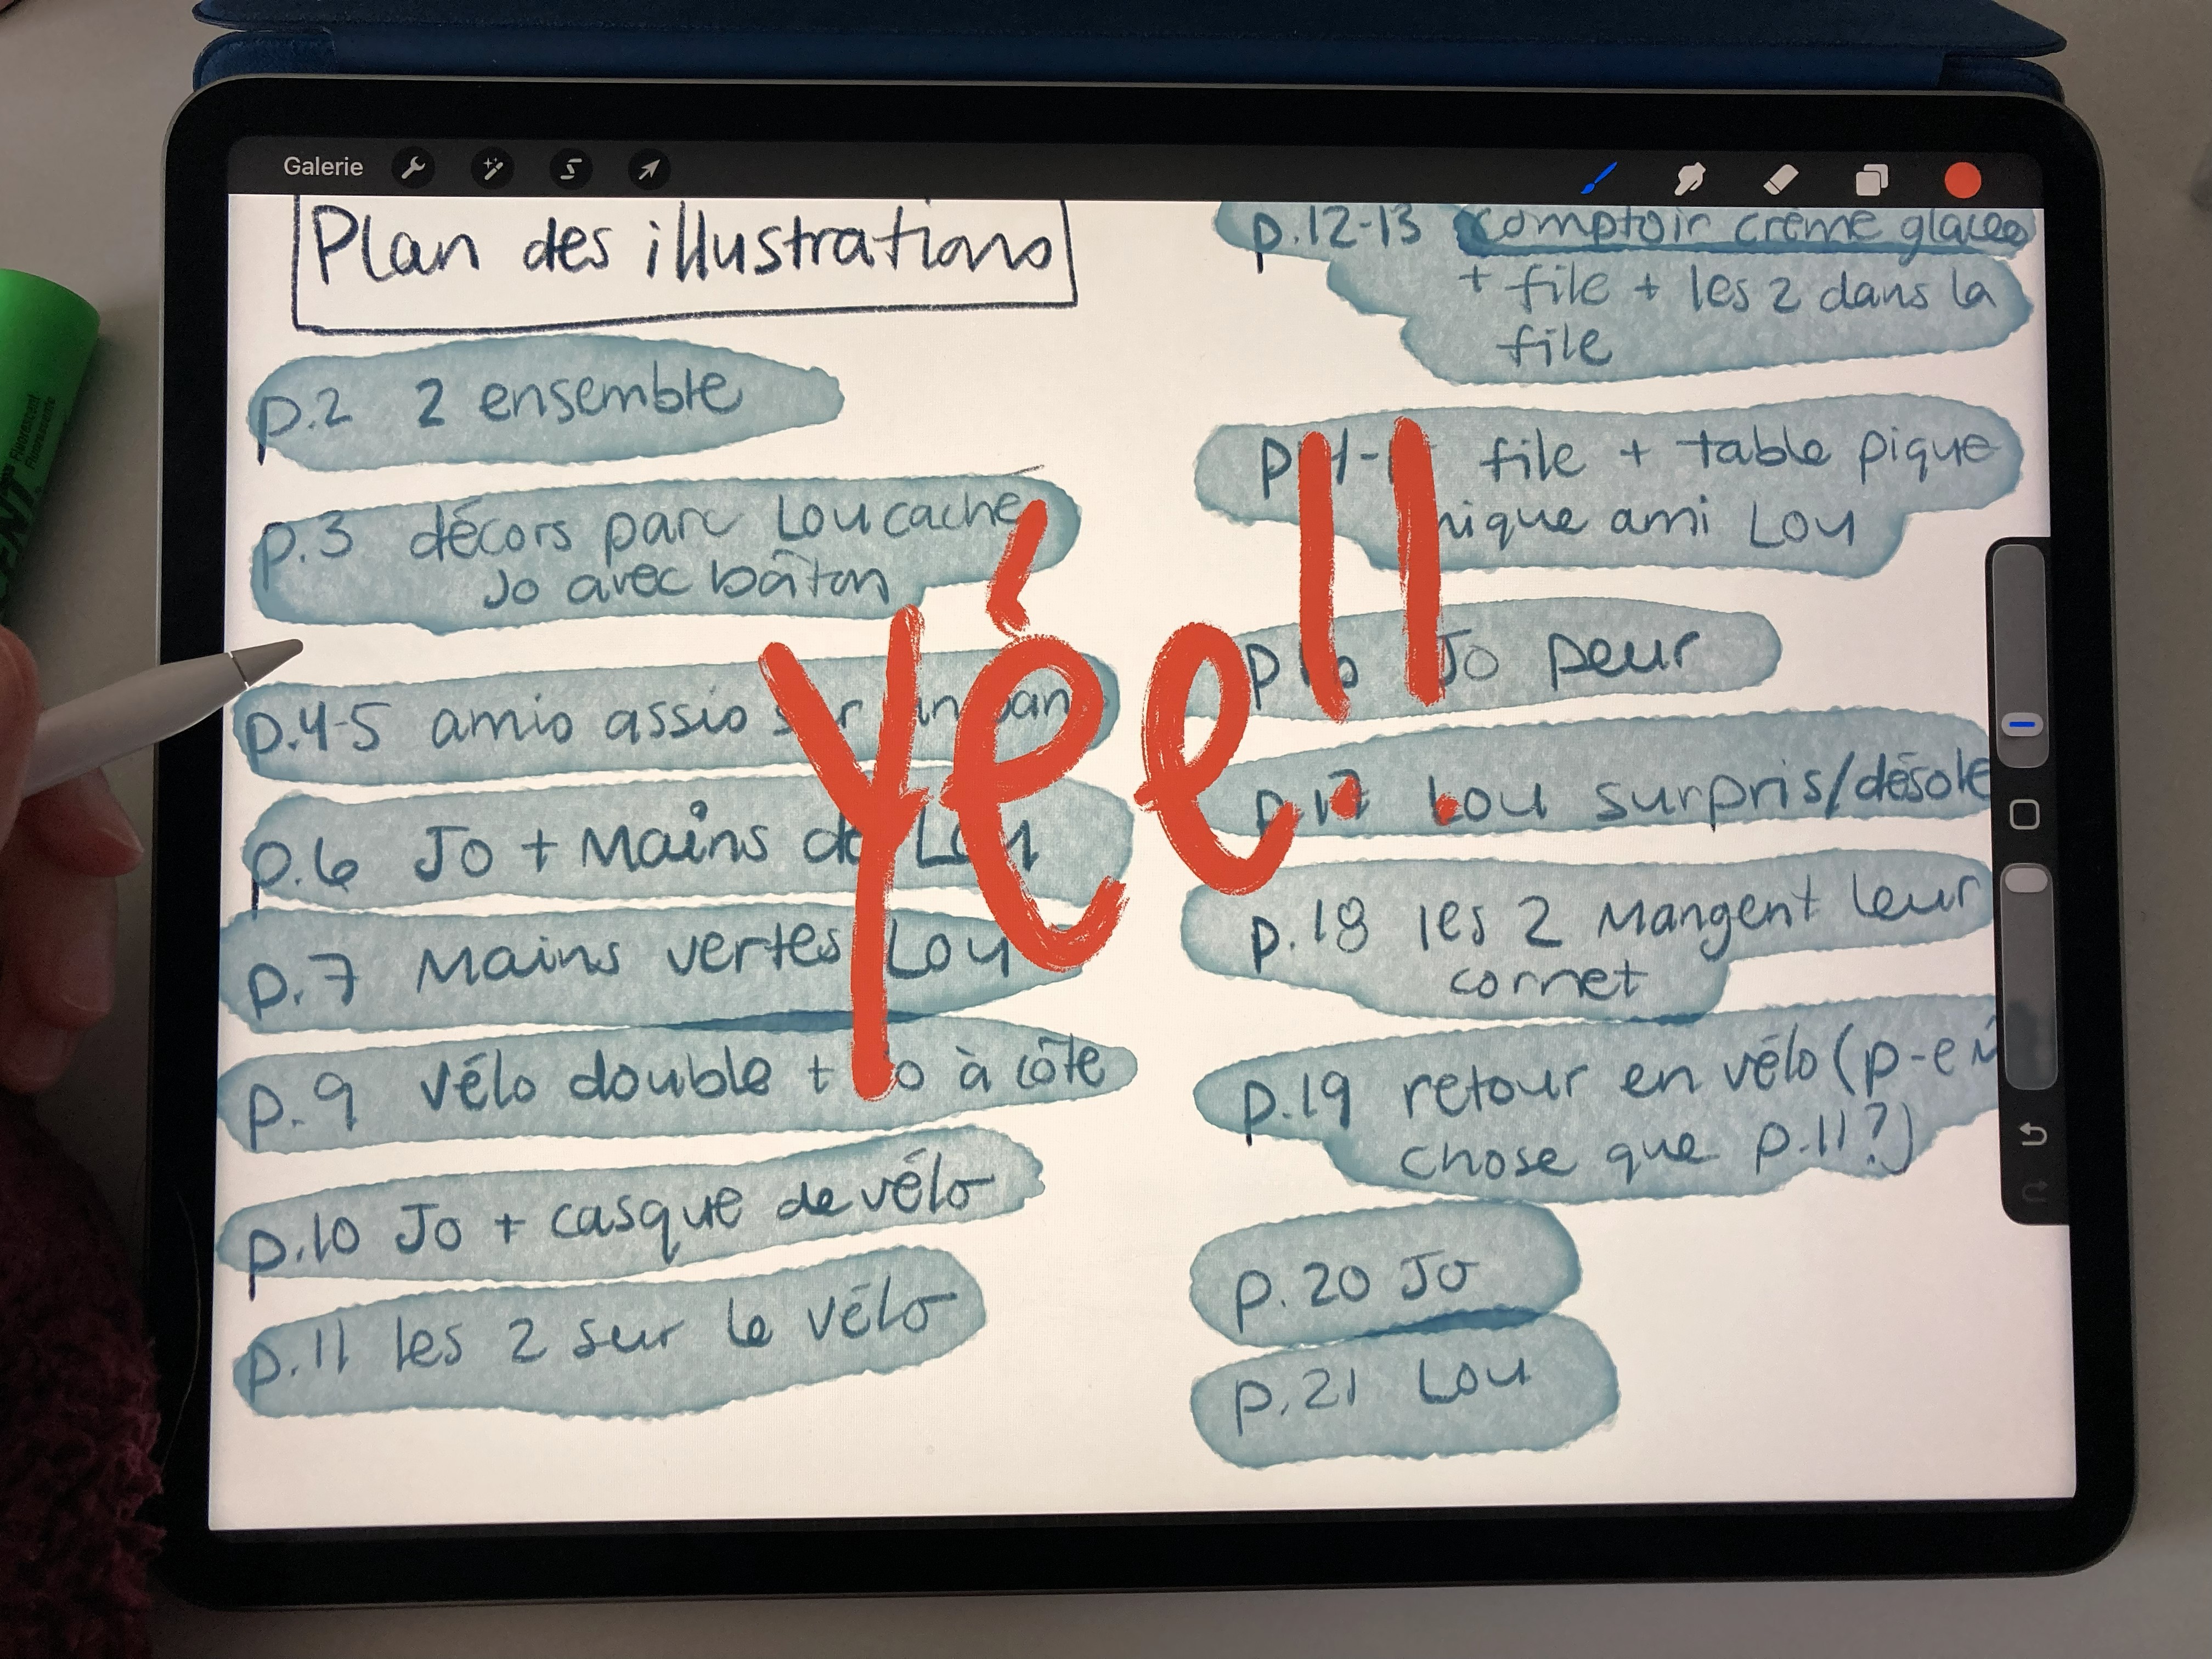 Galerie
Plan des illustrations
p.2 2 ensemble
p.3 décors parc Lou caché
Jo avec bâton
p.4-5 amis assis
p.6 Jo + Mains de Lou
p.7 Mains vertes Lou
p.9 vélo double + à côté
p.10 Jo + casque de vélo
p.11 les 2 sur le vélo
p.12-13 comptoir crème glacée
+ file + les 2 dans la
file
file + table pique
nique ami Lou
Jo peur
p.17 Lou surpris/désolé
p.18 les 2 Mangent leur
cornet
p.19 retour en vélo (p-e
chose que p.11?)
p.20 Jo
p.21 Lou
yée!!
Fluorescent